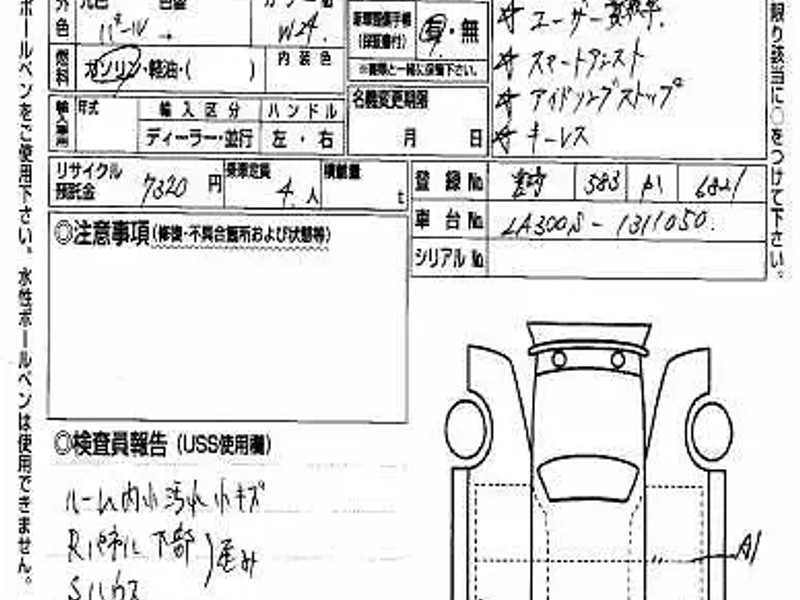 ボールペンをご使用下さい。水性ボールペンは使用できません。
限り該当に○をつけて下さい。
外 元色
色 パール →
W24
燃料 ガソリン・軽油・( )
内装色
記録簿
(保証書付)
有・無
※車検証と一緒に保管下さい。
☆ ユーザー買取車
☆ スマートアシスト
☆ アイドリングストップ
☆ キーレス
輸入車用 年式
輸入区分 ハンドル
ディーラー・並行 左・右
名義変更期限
月 日
リサイクル預託金 7320 円
乗車定員 4 人
積載量 t
登録No. 583 6821
車台No. LA300S-1311050
シリアルNo.
◎注意事項(修復・不具合箇所および状態等)
◎検査員報告(USS使用欄)
ルーム内小汚れ小キズ
Rパネル下部
Sハウス
歪み
A1